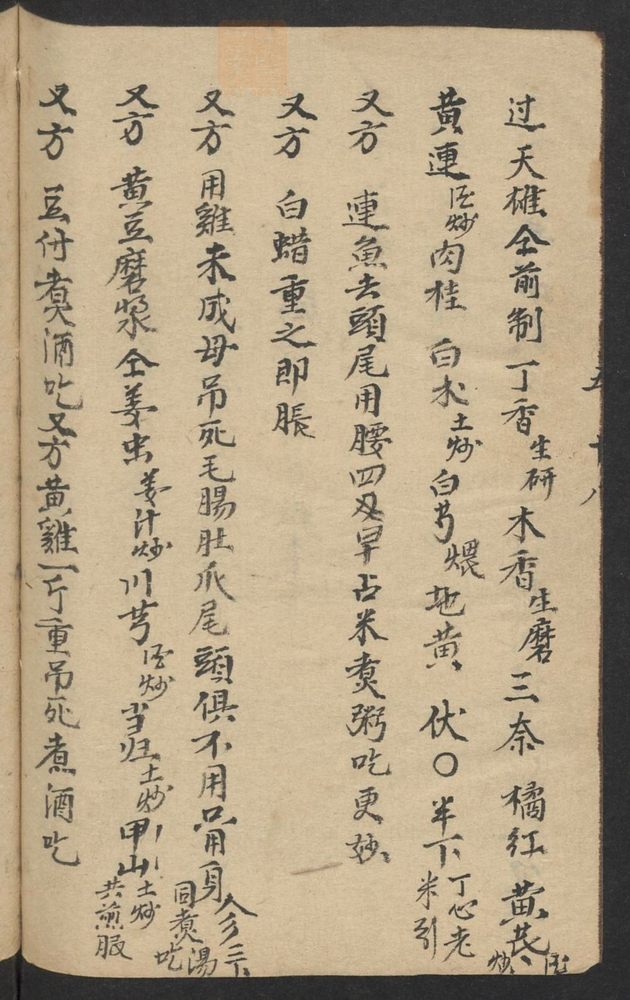 过天雄仝前制丁香生研木香生磨三奈橘红黄芪
黄連炒肉桂白朮土炒白芍煨地黄伏〇半下丁心老米引
又方連魚去頭尾用腰四早占米煑粥吃更妙
又方白蜡重之即脹
又方用雞未成母吊死毛腸肚爪尾頭俱不用只用身同煑湯吃
又方黄豆磨漿仝姜虫姜汁炒川芎炒当归土炒甲山土炒共煎服
又方豆付煑酒吃又方黄雞一斤重吊死煮酒吃
五十八